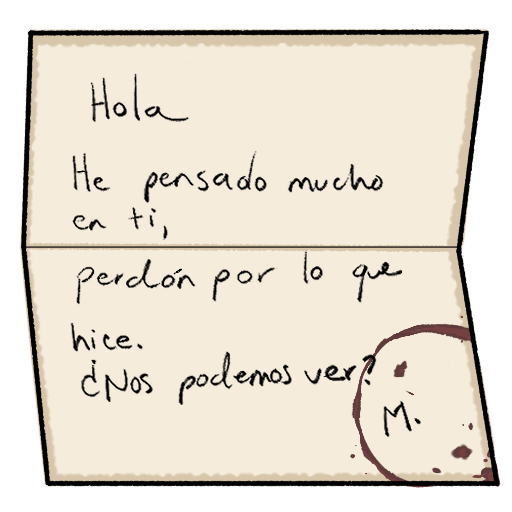 Hola
He pensado mucho
en ti,
perdón por lo que
hice.
¿Nos podemos ver?
M.